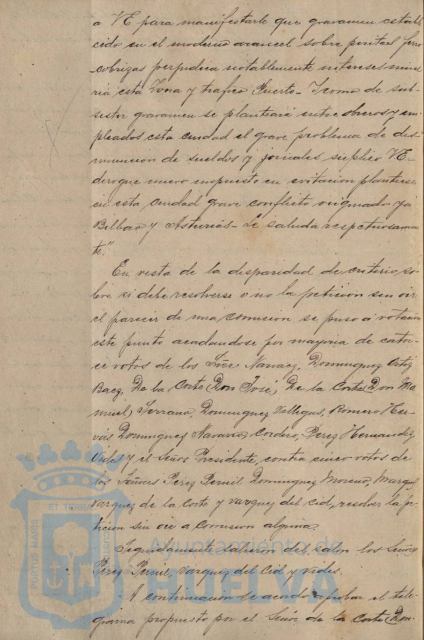 a VE para manifestarle que gravamen estable
cido en el moderno arancel sobre piritas ferro
cobrizas perjudica notablemente intereses mine
ria esta Zona y trafico Puerto - Icomo de sub-
sistir gravamen se plantiará entre obreros y em
pleados esta ciudad el grave problema de dis-
minucion de sueldos y jornales suplico VE-
derogue nuevo impuesto en evitacion plantiese
en esta ciudad grave conflicto originado ya
Bilbao y Asturias - Le saluda respetuosamen
te."
En vista de la disparidad de criterio so
bre si debe resolverse o no la peticion sin oir
el parecer de una comision se puso a votacion
este punto acordandose por mayoria de cator
ce votos de los Sres Narvaez, Dominguez Ortiz
Baez, De la Corte Don José, De la Corte Don Ma
nuel, Serrano, Dominguez Villegas, Romero
Dominguez Navarro, Cordero, Perez Hernandez
Vides y el Señor Presidente, contra cinco votos de
los Señores Perez Pernil Dominguez Moreno, Marquez
Vazquez de la Corte y Vazquez del Cid, resolver la pe
ticion sin oir a Comision alguna.
Seguidamente salieron del salon los Señores
Perez Pernil, Vazquez del Cid y Vides.
A continuacion se acordó aprobar el tele
grama propuesto por el Señor de la Corte (Don
Ayuntamiento de
HUELVA